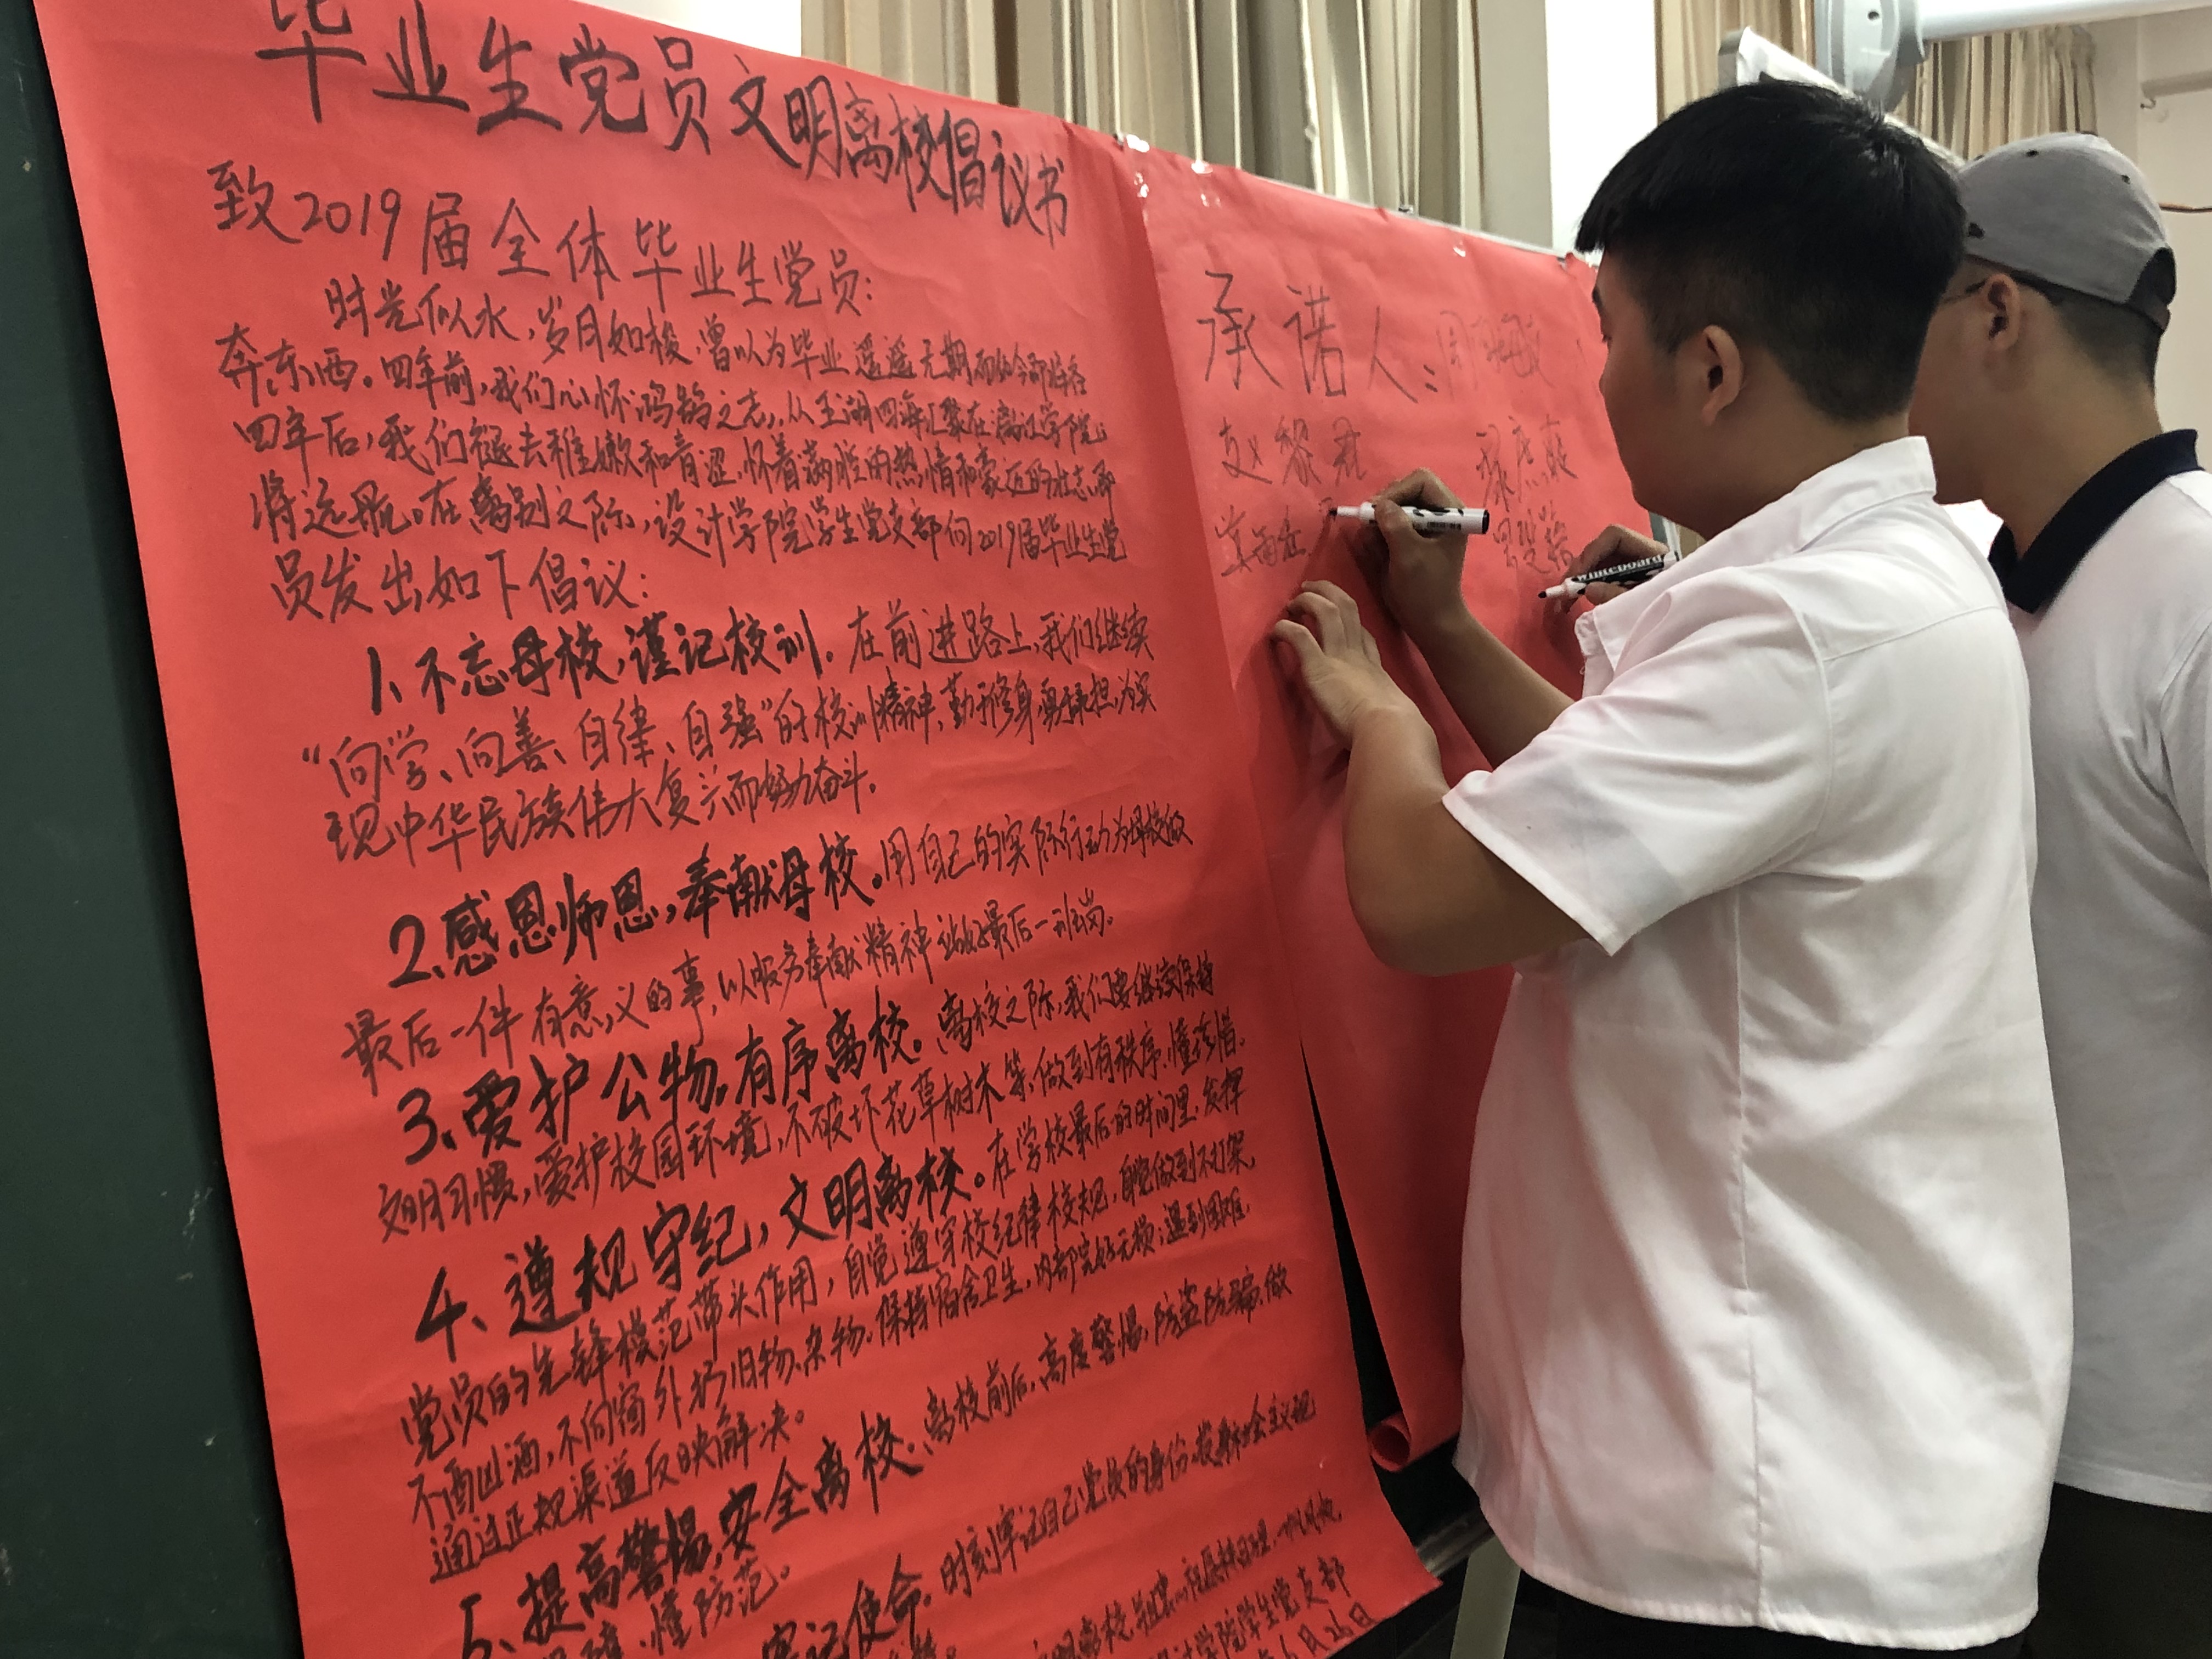 毕业生党员文明离校倡议书
致2019届全体毕业生党员:
时光似水,岁月如梭,曾以为毕业遥遥无期而如今即将各
奔东西。四年前,我们心怀鸿鹄之志,从五湖四海汇聚在漓江学院;
四年后,我们褪去稚嫩和青涩,怀着满腔的热情和豪迈的壮志,即
将远航。在离别之际,设计学院学生党支部向2019届毕业生党
员发出如下倡议:
1、不忘母校,谨记校训。在前进路上,我们继续
“向学、向善、自律、自强”的校训精神,勤于修身,勇于承担,为实
现中华民族伟大复兴而努力奋斗。
2、感恩师恩,奉献母校。用自己的实际行动为母校做
最后一件有意义的事,以服务奉献精神站好最后一班岗。
3、爱护公物,有序离校。离校之际,我们要继续保持
文明习惯,爱护校园环境,不破坏花草树木等,做到有秩序,懂珍惜。
4、遵规守纪,文明离校。在学校最后的时间里,发挥
党员的先锋模范带头作用,自觉遵守校纪律校规,自觉做到不打架,
不酗酒,不向窗外扔旧物、杂物,保持宿舍卫生,内部完好无损;遇到困难,
通过正规渠道反映解决。
5、提高警惕,安全离校。离校前后,高度警惕,防盗防骗,做
懂防范。
牢记使命。时刻牢记自己党员的身份,投身社会主义现
文明离校
设计学院学生党支部
6月26日
承诺人:
赵黎君
Whiteboard